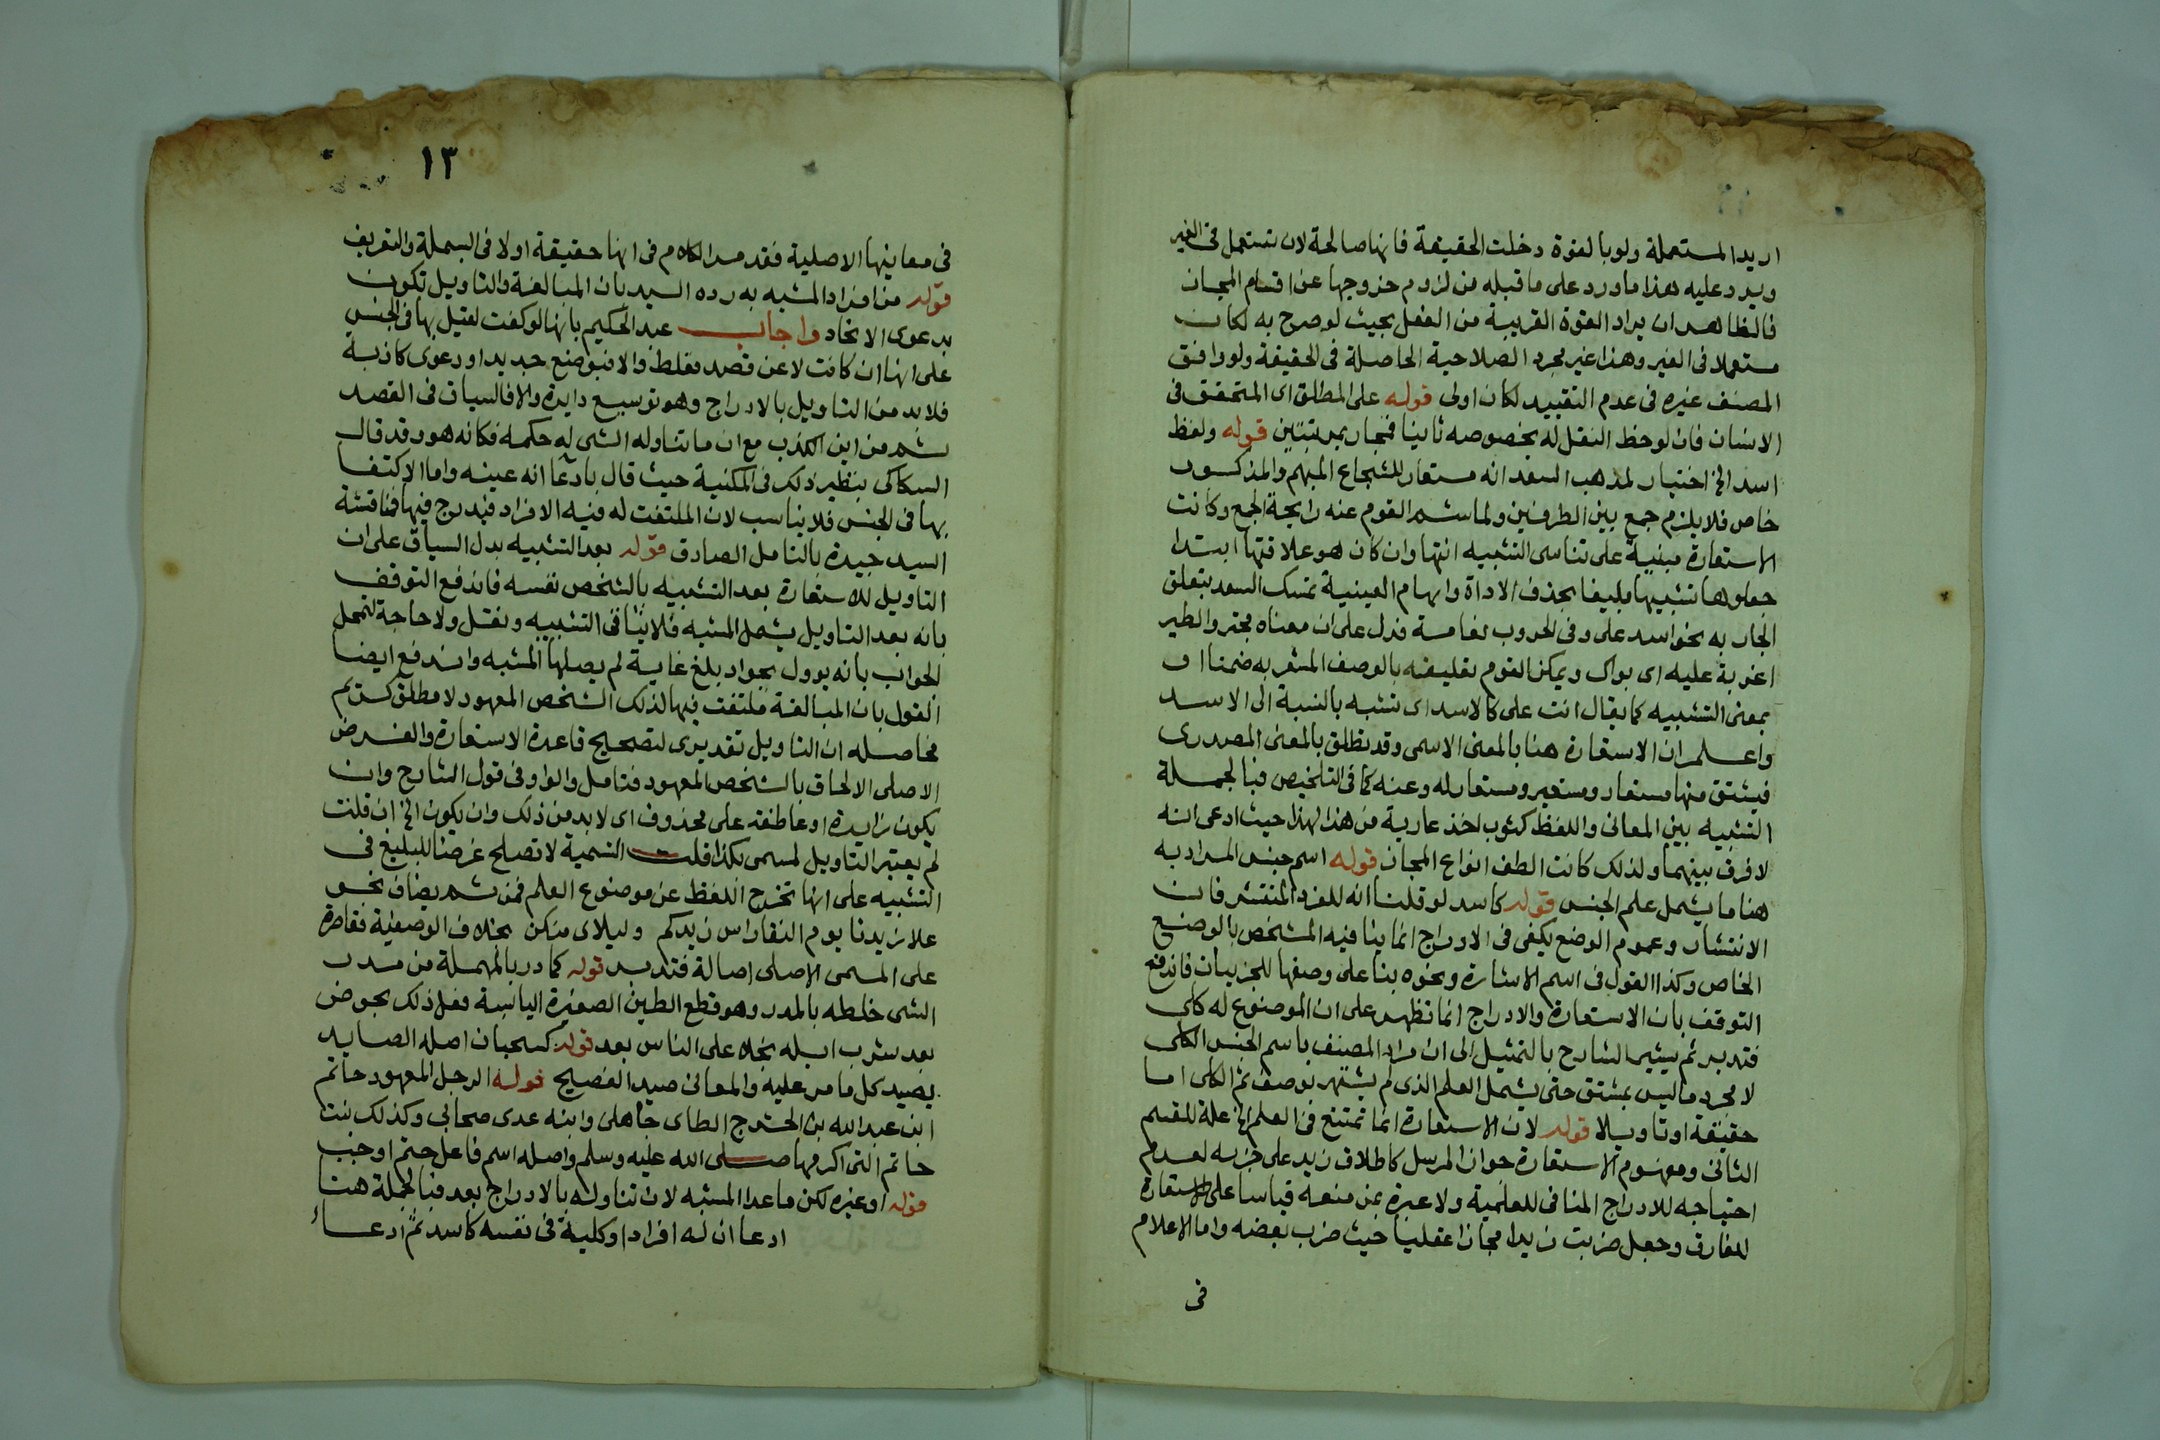 اريد المستعملة ولو بالقوة دخلت الحقيقة فانها صالحة لان تستعمل فى الغير
ويرد عليه هذا ماورد على ما قبله من لزوم خروجها عن اقسام المجاز
فالظاهر ان يراد القوة القريبة من الفعل بحيث لو صرح به لكان
مستعملا فى الغير وهذا غير مجرد الصلاحية الحاصلة فى الحقيقة ولو وافق
المصنف غيره فى عدم التقييد لكان اولى قوله على المطلق اى المتحقق فى
الانسان فان لوحظ النقل له بخصوصه ثانيا فمجاز بمرتبتين قوله ولفظ
اسد الخ اختيار لمذهب السعد انه مستعار للشجاع المبهم والمذكور
خاص فلا يلزم جمع بين الطرفين ولما شم القوم عنه رايحة الجمع وكانت
الاستعارة مبنية على تناسى التشبيه انتها وان كان هو علاقتها ابتدا
جعلوها تشبيها بليغا بحذف الاداة وابهام العينية تمسك السعد بتعلق
الجار به بنحو اسد على وفى الحروب نعامة فدل على ان معناه مجتر والطير
اغربة عليه اى بواك ويمكن القوم تعليقه بالوصف المشعر به ضمنا او
بمعنى التشبيه كما يقال انت على كالاسد اى تشبه بالنسبة الى الاسد
واعلم ان الاستعارة هنا بالمعنى الاسمى وقد تطلق بالمعنى المصدرى
فيشتق منها مستعار ومستعير ومستعار له وعنه كما فى التلخيص فبالجملة
التشبيه بين المعانى واللفظ كثوب اخذ عارية من هذا لهذا حيث ادعى انه
لا فرق بينهما ولذلك كانت الطف انواع المجاز قوله اسم جنس المراد به
هنا ما يشمل علم الجنس قوله كاسد لو قلنا انه للفرد المنتشر فان
الانتشار وعموم الوضع يكفى فى الادراج انما ينافيه المشخص بالوضع
الخاص وكذا القول فى اسم الاشارة ونحوه بنا على وضعها للجزييات فاندفع
التوقف بان الاستعارة والادراج انما تظهر على ان الموضوع له كلى
فتدبر ثم يشير الشارح بالتمثيل الى ان مراد المصنف باسم الجنس الكلى
لا مجرد ما ليس بمشتق حتى يشمل العلم الذى لم يشتهر بوصف ثم الكلى اما
حقيقة او تاويلا قوله لان الاستعارة انما تمتنع فى العلم الخ علة للقسم
الثانى ومفهوم الاستعارة جواز المرسل كاطلاق زيد على جزيه لعدم
احتياجه للادراج المنافى للعلمية ولا عبرة بمن منعه قياسا على الاستعارة
للفارق وجعل ضربت زيدا مجازا عقليا حيث ضرب بعضه واما الاعلام
فى
١٣
فى معانيها الاصلية فقد مر الكلام فى انها حقيقة اولا فى البسملة والتعريف
قوله من افراد المشبه به رده السيد بان المبالغة والتاويل تكون
بدعوى الاتحاد واجاب عبد الحكيم بانها لو كفت لقيل بها فى الجنس
على انها ان كانت لا عن قصد فغلط والا فبوضع جديد او دعوى كاذبة
فلا بد من التاويل بالادراج وهو توسيع دايرة والا فالسياق فى القصد
ثم من اين الكذب مع ان ما تناوله الشى له حكمه فكانه هو وقد قال
السكاكى بنظير ذلك فى المكنية حيث قال بادعا انه عينه واما الاكتفا
بها فى الجنس فلا يناسب لان الملتفت له فيه الافراد فيدرج فيها فمناقشة
السيد جيدة بالتامل الصادق قوله بعد التشبيه يدل السياق على ان
التاويل للاستعارة بعد التشبيه بالشخص نفسه فاندفع التوقف
بانه بعد التاويل يشمل المشبه فلا يتاتى التشبيه ونقل ولا حاجة لتحمل
الجواب بانه يوول بجواد بلغ غاية لم يصلها المشبه واندفع ايضا
القول بان المبالغة ملتفت فيها لذلك الشخص المعهود لا مطلق كريم
فحاصله ان التاويل تقديرى لتصحيح قاعدة الاستعارة والغرض
الاصلى الالحاق بالشخص المعهود فتامل والواو فى قول الشارح وان
يكون زايدة او عاطفة على محذوف اى لابد من ذلك وان يكون الخ ان قلت
لم يعتبر التاويل لمسمى بكذا قلت التسمية لا تصلح غرضا للبليغ فى
التشبيه على انها تخرج اللفظ عن موضوع العلم فمن ثم يضاف نحو
علا زيدنا يوم النقا راس زيدكم وليلاى منكن بخلاف الوصفية فقاصرة
على المسمى الاصلى اصالة فتدبر قوله كمادر بالمهملة من مدر
الشى خلطه بالمدر وهو قطع الطين الصغيرة اليابسة فعل ذلك بحوض
بعد شرب ابله بخلا على الناس بعد قوله كسحبان اصله الصايد
يصيد كل ما مر عليه والمعانى صيد الفصيح قوله الرجل المعهود حاتم
ابن عبد الله بن الحشرج الطاى جاهلى وابنه عدى صحابى وكذلك بنت
حاتم التى اكرمها صلى الله عليه وسلم واصله اسم فاعل حتم اوجب
قوله او غيره لكن ماعدا المشبه لان تناوله بالادراج بعد فبالجملة هنا
ادعا ان له افرادا وكلية فى نفسه كاسد ثم ادعاء